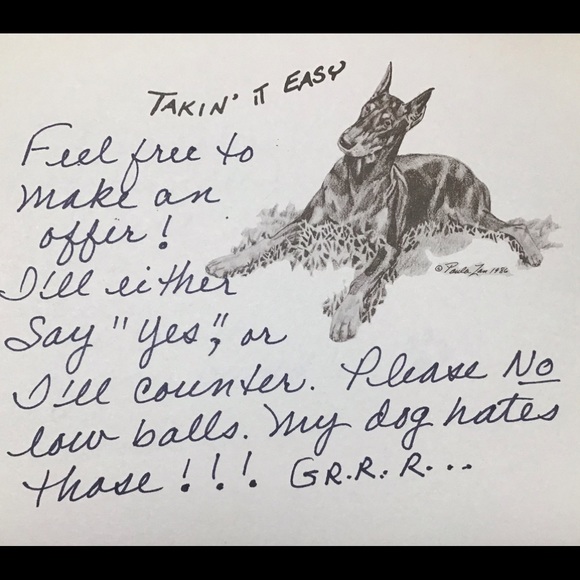 TAKIN' IT EASY
Feel free to
make an
offer!
I'll either
Say "Yes", or
I'll counter. Please No
low balls. My dog hates
those!!! GR.R.R...
© Paula Zan 1986